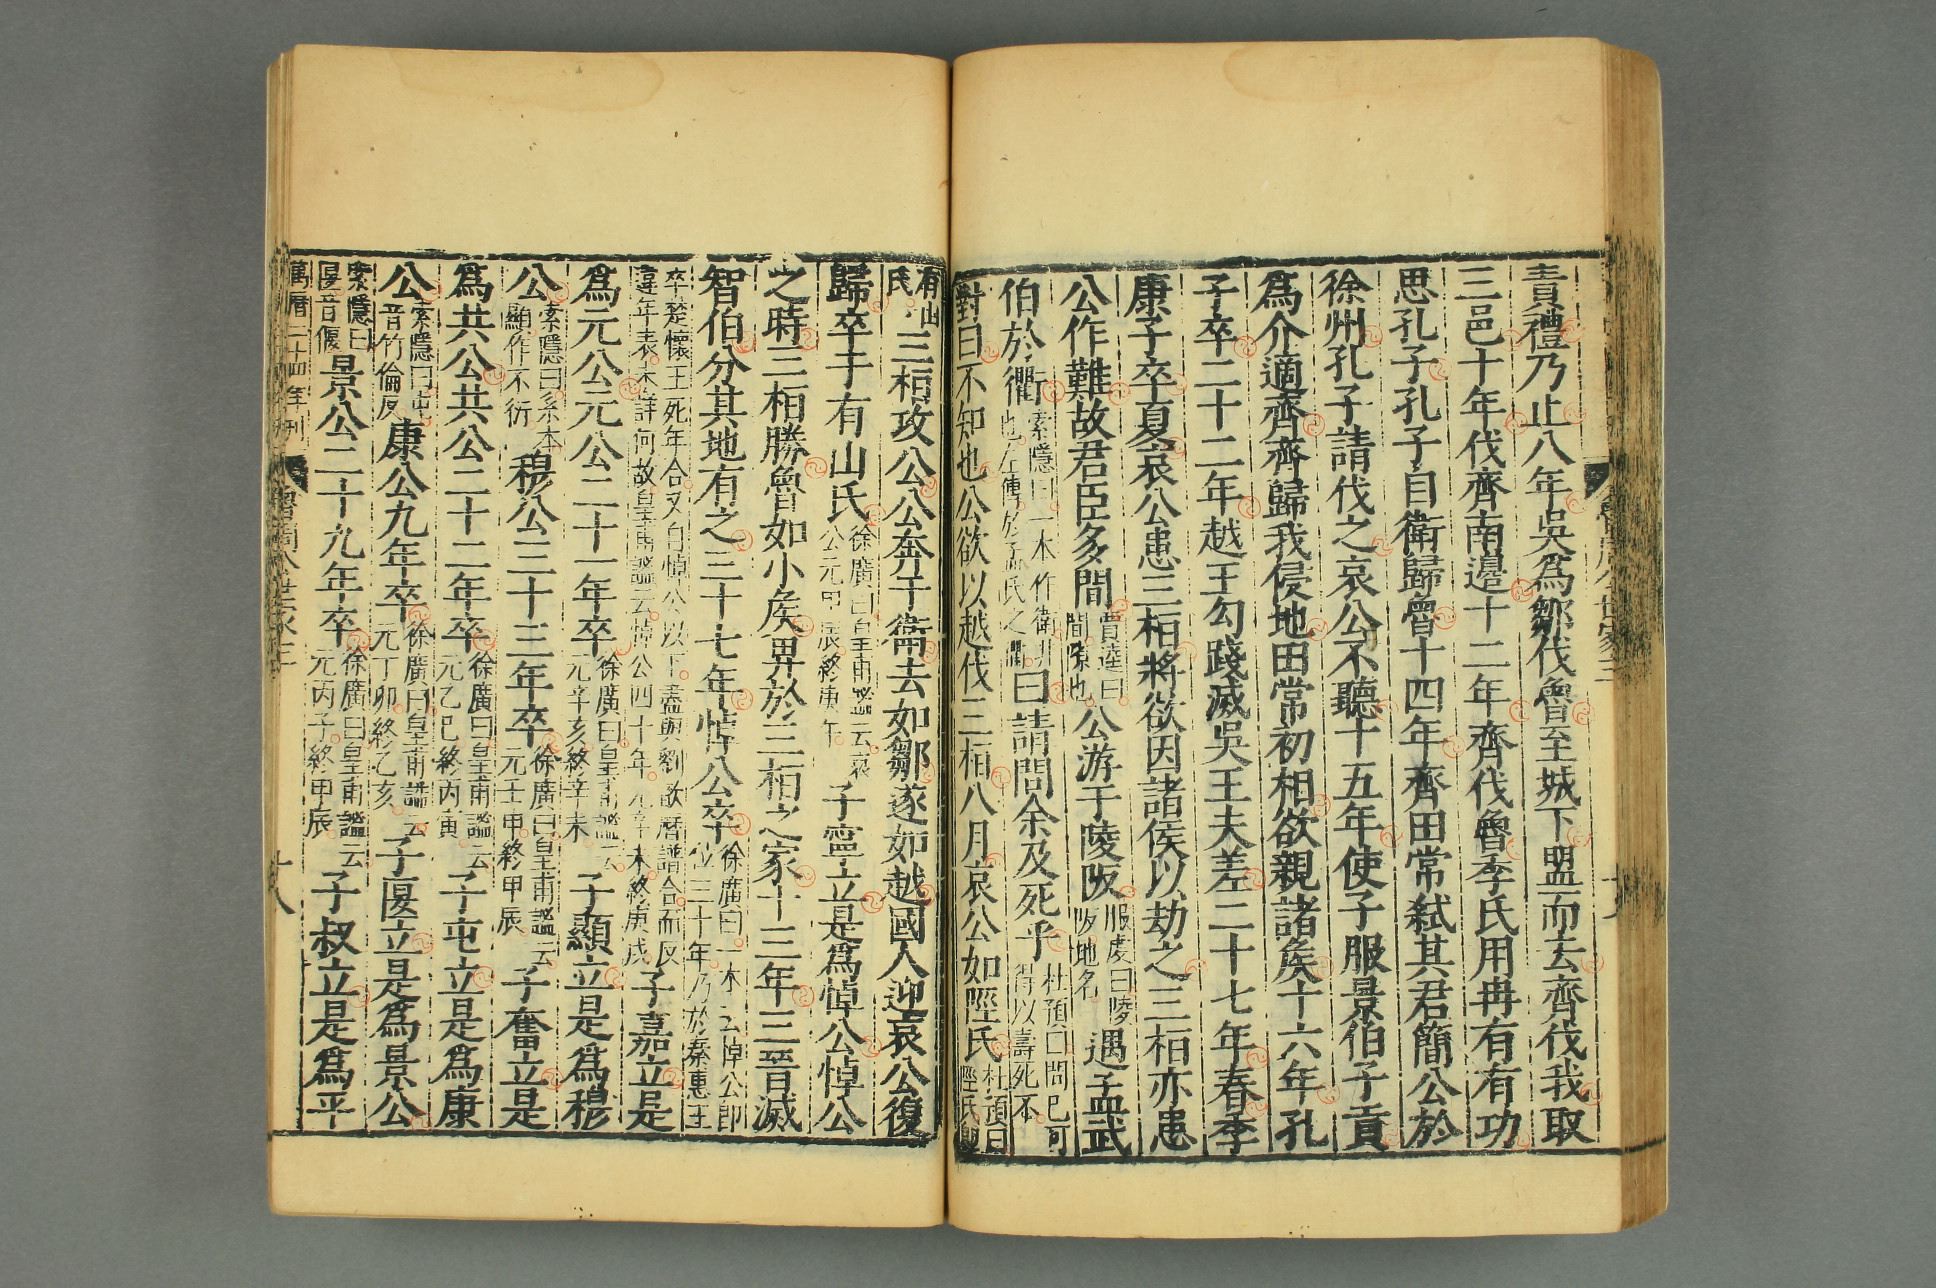 責禮乃止八年吳爲鄒伐魯至城下盟而去齊伐我取
三邑十年伐齊南邊十二年齊伐魯季氏用冉有有功
思孔子孔子自衛歸魯十四年齊田常弑其君簡公於
徐州孔子請伐之哀公不聽十五年使子服景伯子貢
爲介適齊齊歸我侵地田常初相欲親諸侯十六年孔
子卒二十二年越王勾踐滅吳王夫差二十七年春季
康子卒夏哀公患三桓將欲因諸侯以劫之三桓亦患
公作難故君臣多間賈逵曰間隙也公游于陵阪服虔曰陵阪地名遇孟武
伯於衢索隱曰一本作衛非也左傳於孟氏之衢曰請問余及死乎杜預曰問己可得以壽死不
對曰不知也公欲以越伐三桓八月哀公如陘氏杜預曰陘氏卽
有山氏三桓攻公公奔于衛去如鄒遂如越國人迎哀公復
歸卒于有山氏徐廣曰皇甫謐云哀公元甲辰終庚午子寧立是爲悼公悼公
之時三桓勝魯如小侯卑於三桓之家十三年三晉滅
智伯分其地有之三十七年悼公卒徐廣曰一本云悼公卽位三十年乃於秦惠王
卒楚懷王死年合又自悼公以下盡與劉歆曆譜合而反違年表未詳何故皇甫謐云悼公四十年元辛未終庚戌子嘉立是
爲元公元公二十一年卒徐廣曰皇甫謐云元辛亥終辛未子顯立是爲穆
公索隱曰系本顯作不衍穆公三十三年卒徐廣曰皇甫謐云元壬申終甲辰子奮立是
爲共公共公二十二年卒徐廣曰皇甫謐云元乙巳終丙寅子屯立是爲康
公索隱曰屯音竹倫反康公九年卒徐廣曰皇甫謐云元丁卯終乙亥子匽立是爲景公
索隱曰匽音偃景公二十九年卒徐廣曰皇甫謐云元丙子終甲辰子叔立是爲平
萬曆二十四年刊
魯周公世家三
十八